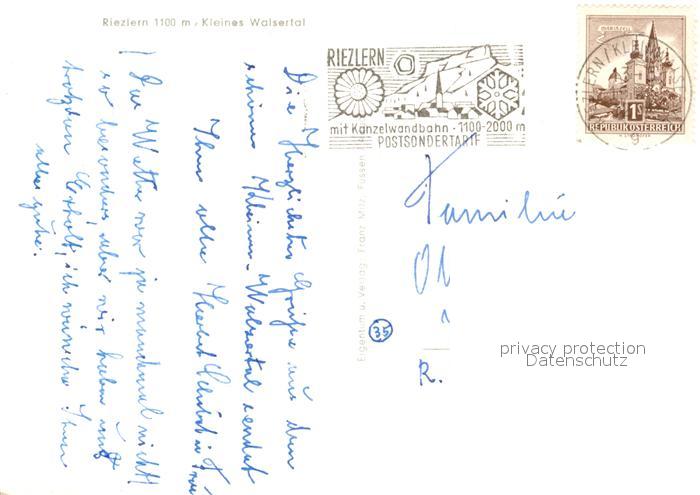 Riezlern 1100 m, Kleines Walsertal
Die Herzlichsten Grüße aus dem
schönen Kleinen-Walsertal sendet
Ihnen allen
! Das Wetter war ja manchmal nicht!
so besonders, aber wir haben uns
trotzdem erholt, ich wünsche Ihnen
alles gute.
RIEZLERN
mit Kanzelwandbahn · 1100-2000 m
POSTSONDERTARIF
MARIAZELL
1S
REPUBLIK ÖSTERREICH
Eigentum u. Verlag: Franz Milz, Füssen
35
Familie
Ol
R.
privacy protection
Datenschutz